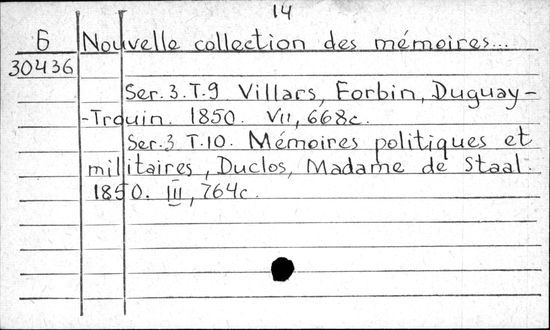 14
6 Nouvelle collection des mémoires...
30436
Ser. 3. T.9 Villars, Forbin, Duguay-
-Trouin. 1850. VII, 668c.
Ser. 3 T.10. Mémoires politiques et
militaires, Duclos, Madame de Staal.
1850. III, 764c.